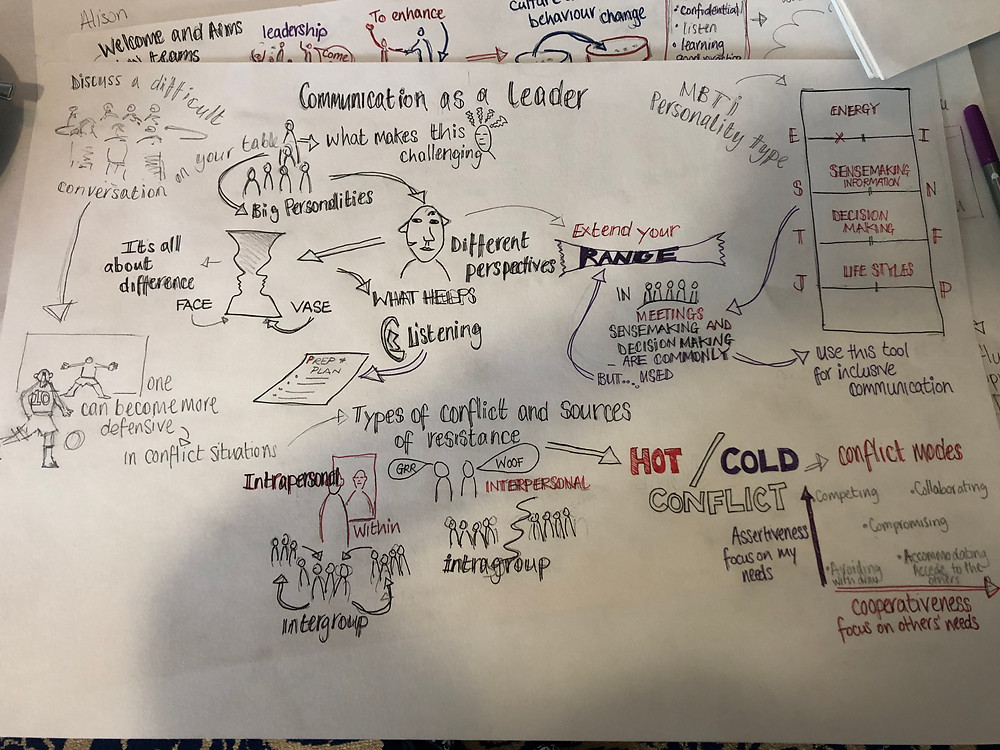 Alison
Welcome and Aims
teams
leadership
come
To enhance
behaviour change
• confidential
• listen
• learning
Discuss a difficult
conversation
on your table
Communication as a leader
what makes this
challenging
Big Personalities
It's all
about
difference
FACE
VASE
Different
perspectives
WHAT HELPS
Listening
PREP +
PLAN
Extend your
RANGE
IN
MEETINGS
SENSEMAKING AND
DECISION MAKING
– ARE COMMONLY
USED
BUT....
MBTi
Personality type
ENERGY
E
x
I
SENSEMAKING
INFORMATION
S
N
DECISION
MAKING
T
F
LIFE STYLES
J
P
use this tool
for inclusive
communication
10
one
can become more
defensive
in conflict situations
Types of conflict and sources
of resistance
Intrapersonal
within
GRR
WOOF
INTERPERSONAL
intragroup
Intergroup
HOT / COLD
CONFLICT
conflict modes
Competing
• Collaborating
• Compromising
• Avoiding
withdraw
• Accommodating
Accede to the
others
Assertiveness
focus on my
needs
cooperativeness
focus on others' needs